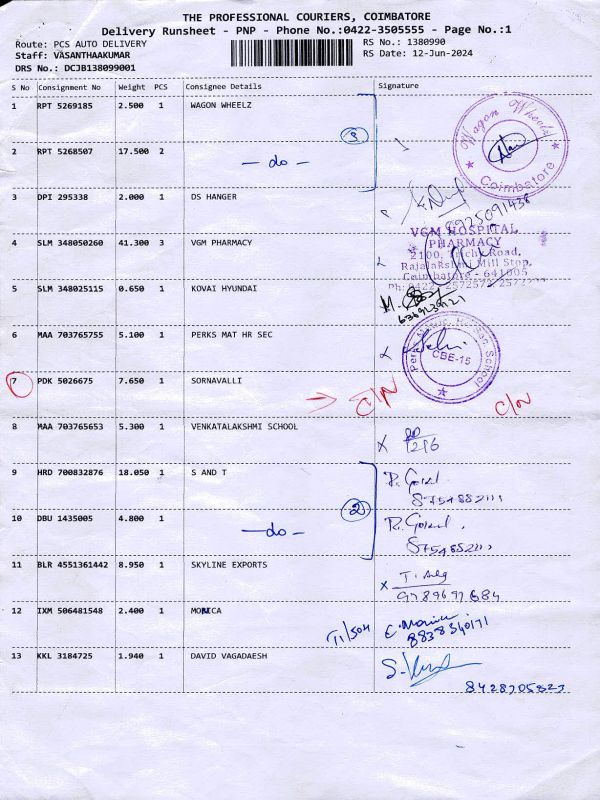 THE PROFESSIONAL COURIERS, COIMBATORE
Delivery Runsheet - PNP - Phone No.:0422-3505555 - Page No.:1
Route: PCS AUTO DELIVERY
Staff: VASANTHAAKUMAR
DRS No.: DCJB138099001
RS No.: 1380990
RS Date: 12-Jun-2024
S No Consignment No Weight PCS Consignee Details Signature
1 RPT 5269185 2.500 1 WAGON WHEELZ
Wagon Wheelz
Coimbatore
2 RPT 5268507 17.500 2 - do -
3
3 DPI 295338 2.000 1 DS HANGER
8925091438
4 SLM 348050260 41.300 3 VGM PHARMACY
VGM HOSPITAL
PHARMACY
2100, Trichy Road,
Rajalakshmi Mill Stop,
Coimbatore - 641005
5 SLM 348025115 0.650 1 KOVAI HYUNDAI
6 MAA 703765755 5.100 1 PERKS MAT HR SEC
CBE-15
7 PDK 5026675 7.650 1 SORNAVALLI
C/N C/N
8 MAA 703765653 5.300 1 VENKATALAKSHMI SCHOOL
9 HRD 700832876 18.050 1 S AND T
10 DBU 1435005 4.800 1 - do -
2
11 BLR 4551361442 8.950 1 SKYLINE EXPORTS
12 IXM 506481548 2.400 1 MONICA
8838340171
13 KKL 3184725 1.940 1 DAVID VAGADAESH